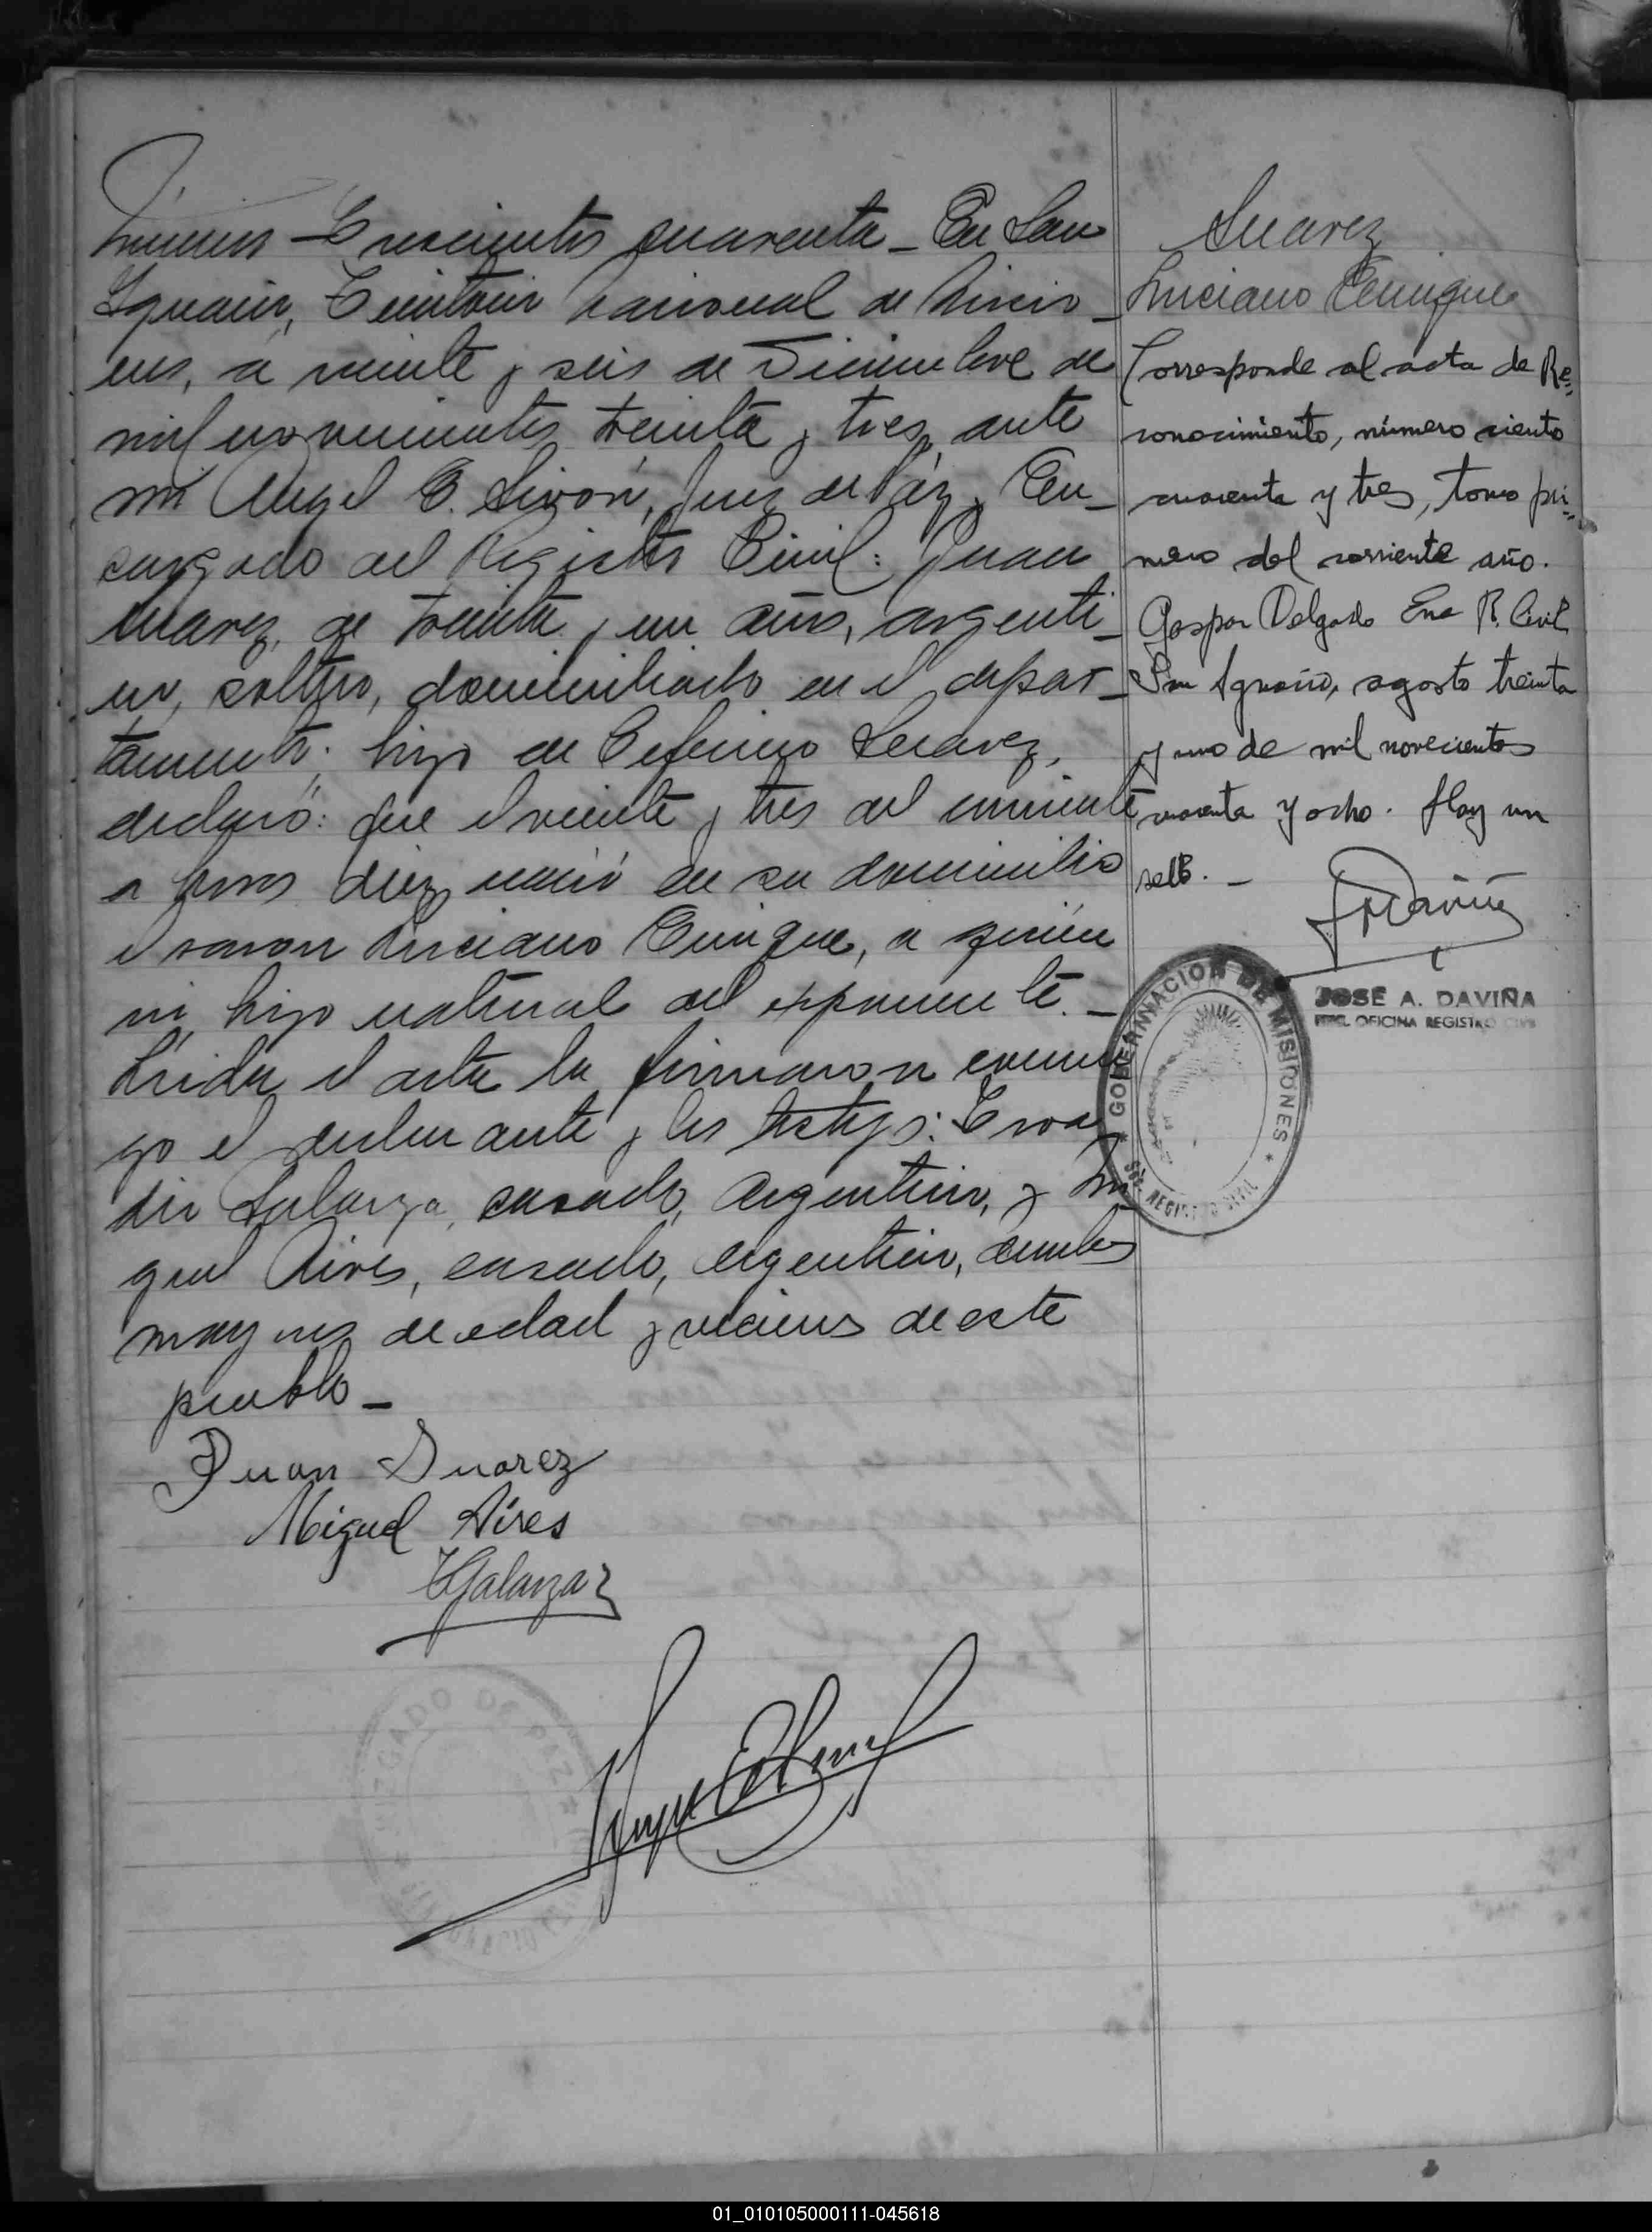 Número Trescientos cuarenta _ En San
Ignacio, Territorio Nacional de Misio_
nes, a veinte y seis de Diciembre de
mil novecientos treinta y tres, ante
mi Angel E. Livon, Juez de Páz y En_
cargado del Registro Civil: Juan
Suarez, de treinta y un años, argenti_
no, soltero, domiciliado en el depar_
tamento; hijo de Ceferino Suarez,
declaró: que el veinte y tres del corriente
a horas diez nació en su domicilio
el varon Luciano Enrique, a quien
vi, hijo natural del exponente._
Leida el acta la firmaron conmi
go el declarante y los testigos:
Galarza, casado, argentino, y Mi
guel Aires, casado, argentino, ambos
mayores de edad y vecinos de este
pueblo_
Juan Suarez
Miguel Aires
Galarza
JUZGADO DE PAZ
Suarez
Luciano Enrique
Corresponde al acta de Re=
conocimiento, número ciento
cuarenta y tres, tomo pri=
mero del corriente año.
Gaspar Delgado Enc R. Civil
San Ignacio, agosto treinta
y uno de mil novecientos
cuarenta y ocho. Hay un
sello._
JOSÉ A. DAVIÑA
ENC. OFICINA REGISTRO CIVIL
GOBERNACION DE MISIONES
REGISTRO CIVIL
01_010105000111-045618